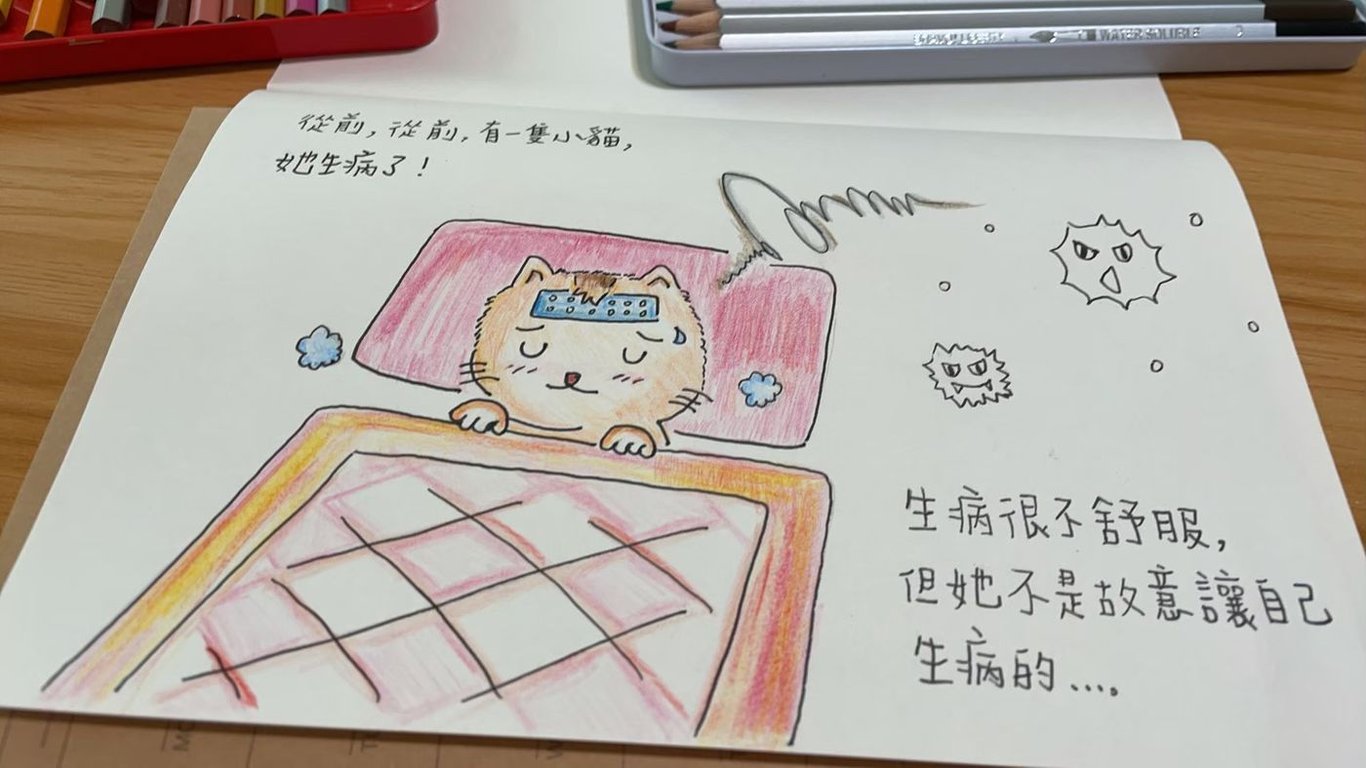 從前，從前，有一隻小貓，
她生病了！
生病很不舒服，
但她不是故意讓自己
生病的....
WATER SOLUBLE